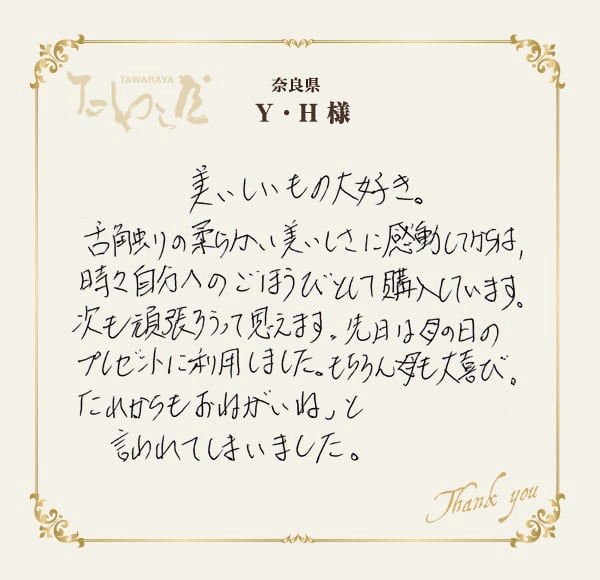 TAWARAYA
たわらや
奈良県
Y・H 様
美しいもの大好き。
舌触りの柔らかい美しさに感動してからは、
時々自分へのごほうびとして購入しています。
次も頑張ろうって思えます。先日は母の日の
プレゼントに利用しました。もちろん母も大喜び。
これからもおねがいね」と
言われてしまいました。
Thank you